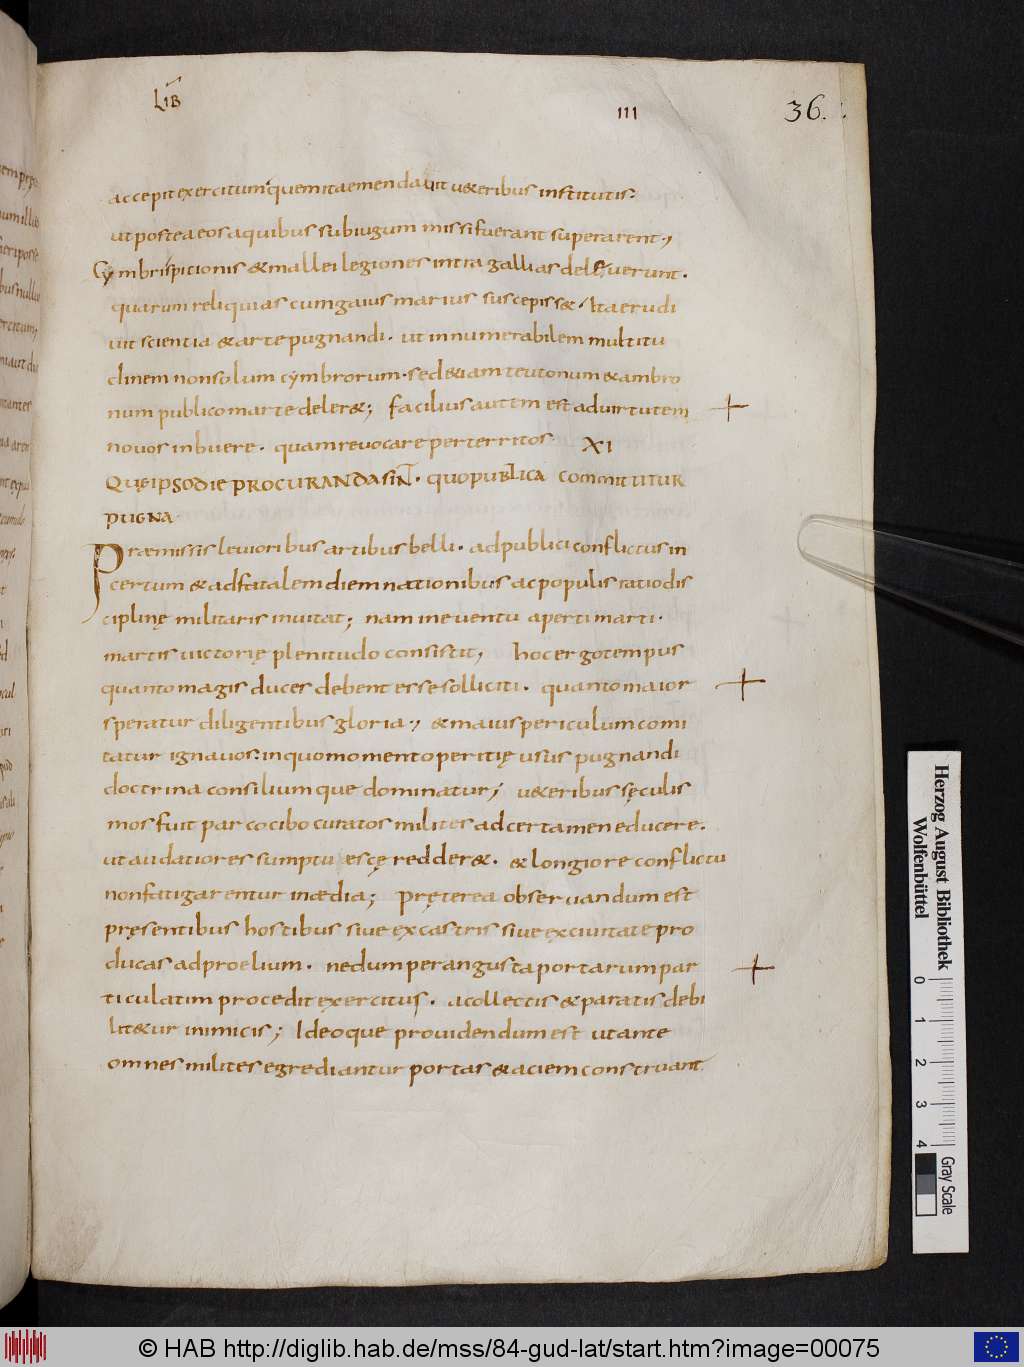 LIB III 36.
accepit exercitum quem ita emendavit u&eribus institutis.
ut postea eos a quibus subiugum missi fuerant superarent;
Cymbri spicionis & mallei legiones intra gallias deleuerunt.
quarum reliquias cum gaius marius suscepiss&. Ita erudi
uit scientia & arte pugnandi. ut innumerabilem multitu
dinem non solum cymbrorum. sed &iam teutonum & ambro
num publico marte deler&; facilius autem est ad uirtutem
nouos inbuere. quam reuocare perterritos XI
QUĘ IPSO DIE PROCURANDA SINT. QUO PUBLICA COMMITTITUR
PUGNA
Præmissis leuioribus artibus belli. ad publici conflictus in
certum & ad fatalem diem nationibus ac populis ratio dis
ciplinę militaris inuitat; nam in euentu aperti marti.
martis uictorię plenitudo consistit; hoc ergo tempus
quanto magis duces debent esse solliciti. quanto maior
speratur diligentibus gloria; & maius periculum comi
tatur ignauos. in quo momento peritię usus pugnandi
doctrina consiliumque dominatur; u&eribus sęculis
mos fuit parco cibo curatos milites ad certamen educere.
ut audatiores sumptu escę redder&. & longiore conflictu
non fatigarentur inædia; Pręterea obseruandum est
pręsentibus hostibus siue ex castris siue ex ciuitate pro
ducas ad proelium. ne dum per angusta portarum par
ticulatim procedit exercitus. a collectis & paratis debi
lit&ur inimicis; Ideoque prouidendum est ut ante
omnes milites egrediantur portas & aciem construant
Herzog August Bibliothek
Wolfenbüttel
0 1 2 3 4
Gray Scale
© HAB http://diglib.hab.de/mss/84-gud-lat/start.htm?image=00075